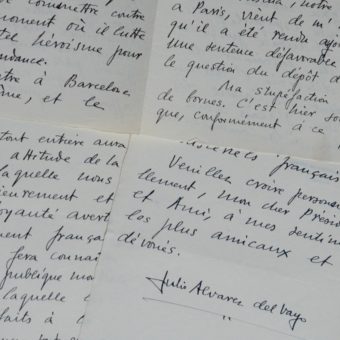 commettre contre
moment où il lutte
tel héroïsme pour
ndance.
tre à Barcelone
me, et le
notre
à Paris, vient de m'
qu'il a été rendu ajou
une sentence défavorabl
la question du dépôt d
Ma stupéfaction
de bornes. C'est hier so
que, conformément à ce
tout entière aura
attitude de la
laquelle nous
ieurement et
oyauté avert
ment françai
fera connai
publique ma
laquelle
faits à
français
Veuillez croire person
llement, mon cher Présid
et Ami, à mes sentim
les plus amicaux et
dévoués.
Julio Alvarez del Vayo